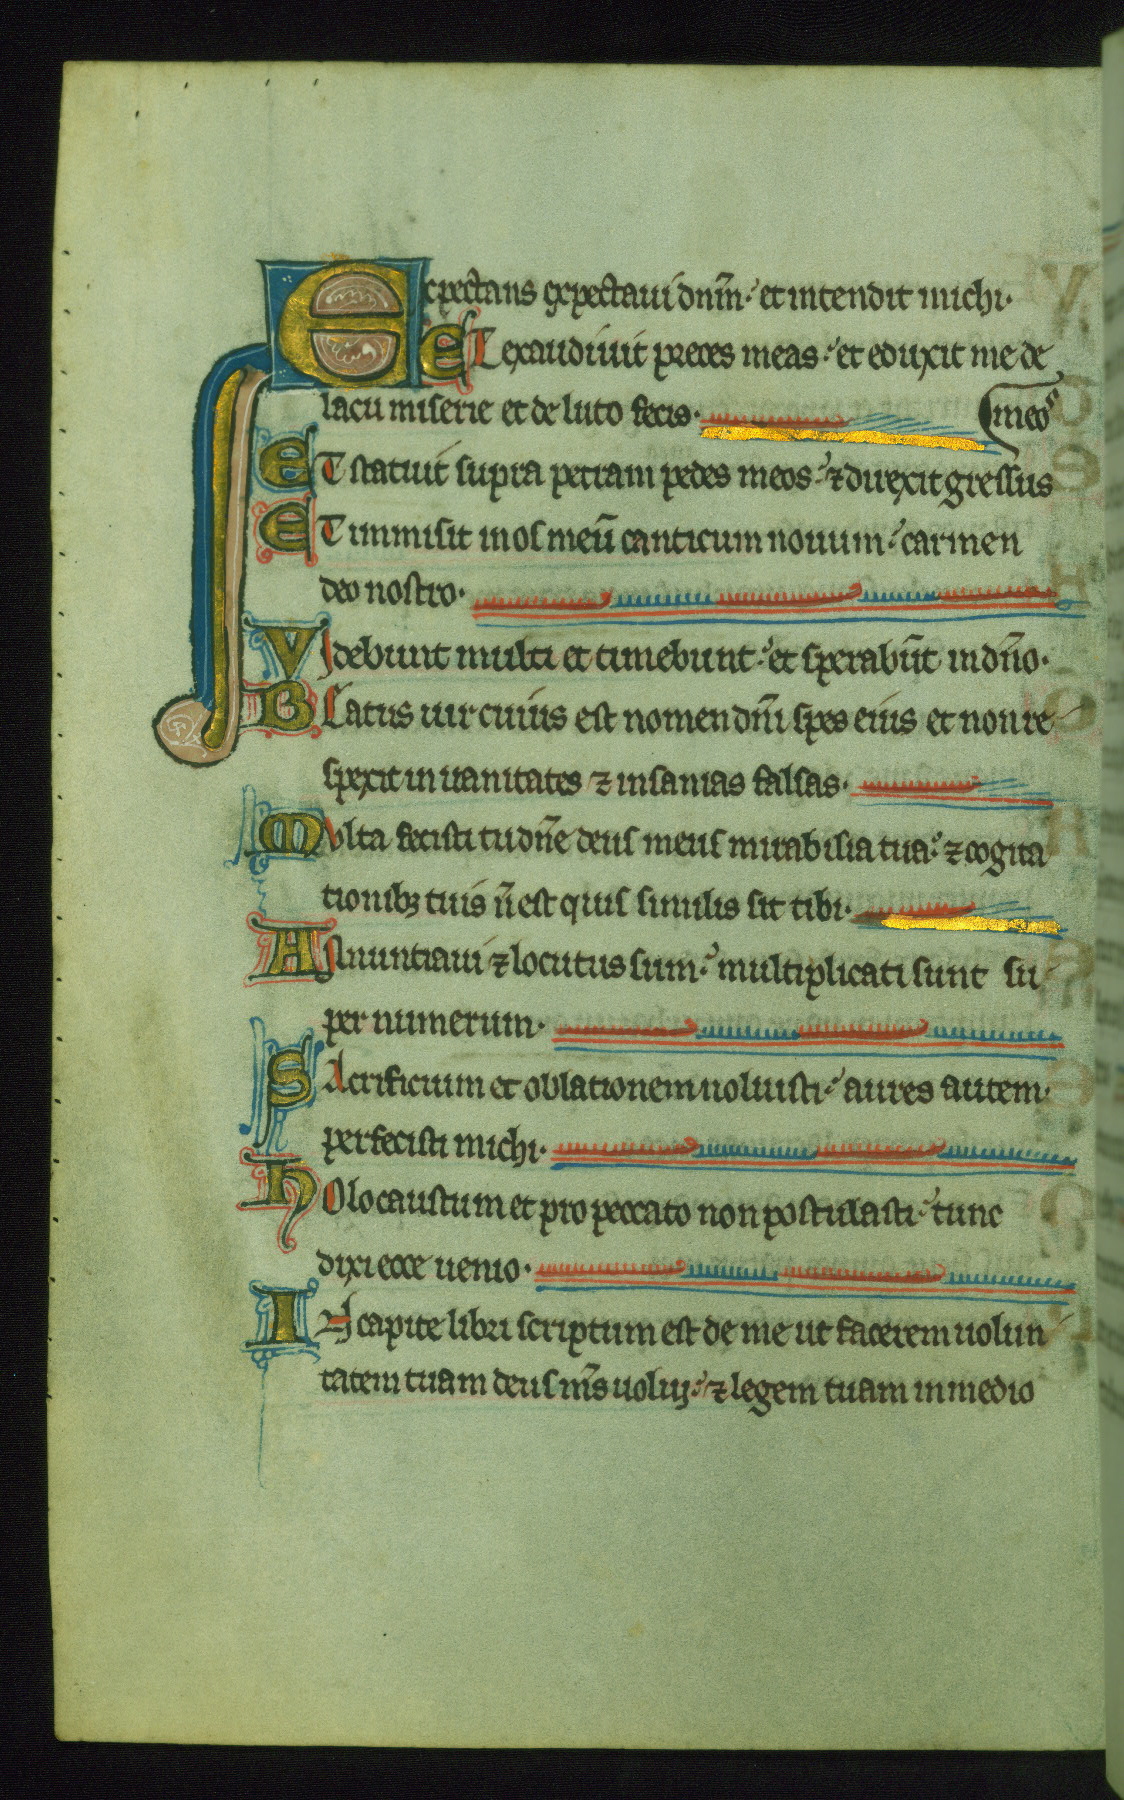 Excpectans expectaui dnm̄. et intendit michi.
Et exaudiuit preces meas. et eduxit me de
lacu miserie et de luto fecis.
meos
Et statuit supra petram pedes meos. ⁊ direxit gressus
Et immisit in os meū canticum nouum. carmen
deo nostro.
Videbunt multi et timebunt. et sperabūt in dn̄o.
Beatus uir cuius est nomen dn̄i spes eius et non re
spexit in uanitates ⁊ insanias falsas.
Multa fecisti tu dn̄e deus meus mirabilia tua. ⁊ cogita
tionibꝫ tuis n̄ est quis similis sit tibi.
Annuntiaui ⁊ locutus sum. multiplicati sunt su
per numerum.
Sacrificium et oblationem noluisti. aures autem.
perfecisti michi.
Holocaustum et pro peccato non postulasti. tunc
dixi ecce uenio.
In capite libri scriptum est de me ut facerem uolun
tatem tuam deus m̄s uolui. ⁊ legem tuam in medio